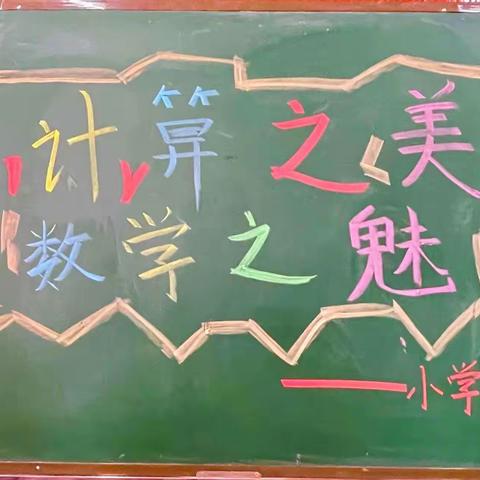 计算之美
数学之魅
——小学